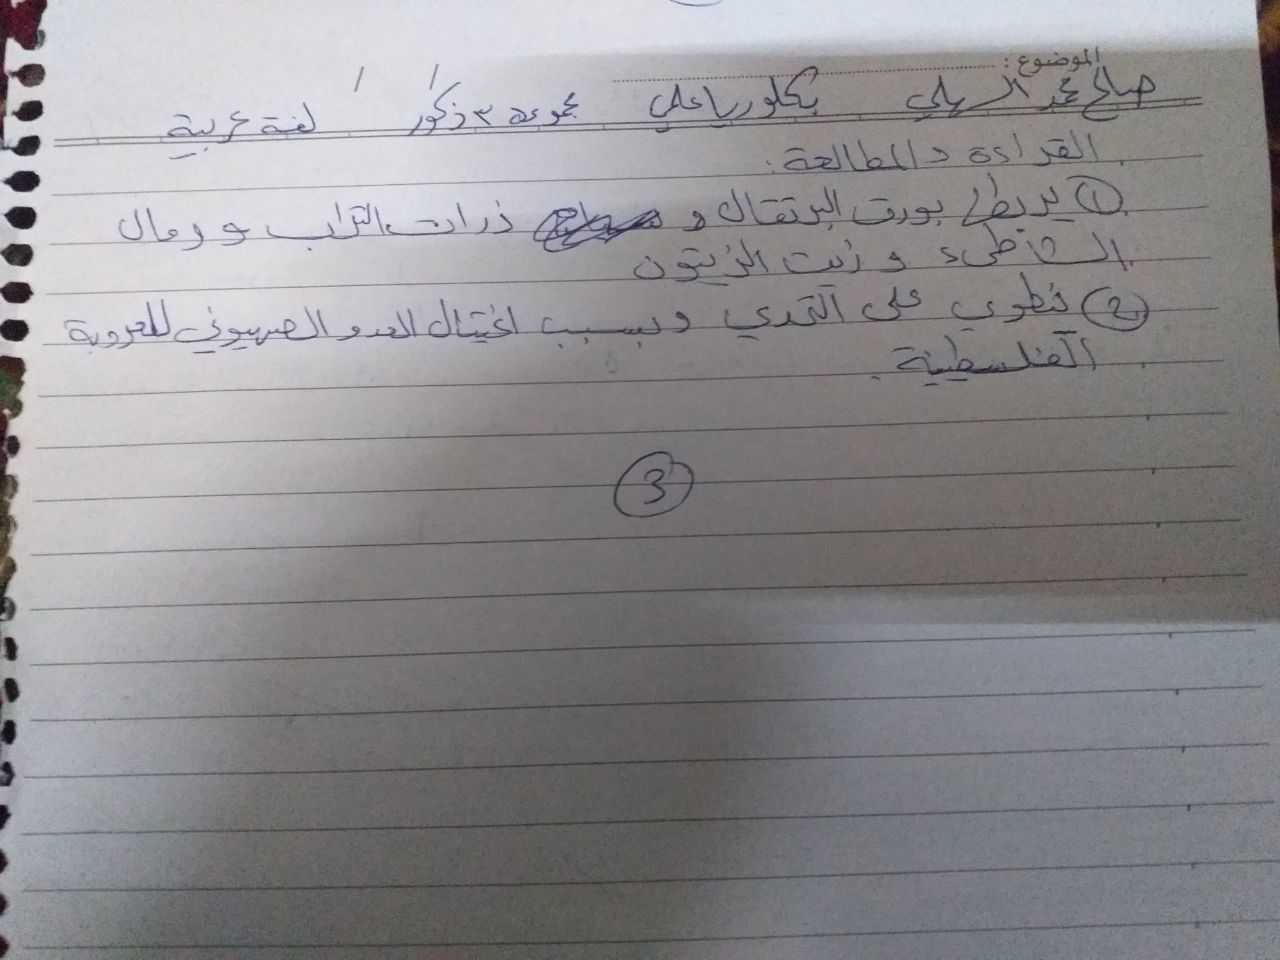 الموضوع:
صالح محمد السهلي بكلوريا علمي مجموعة ٣ ذكور / / لغة عربية
القراءة والمطالعة:
① يربط بورق البرتقال و ذرات التراب و رمال
الشاطىء و زيت الزيتون
② تنطوي على التحدي وبسبب اغتيال العدو الصهيوني للعروبة
الفلسطينية.
3